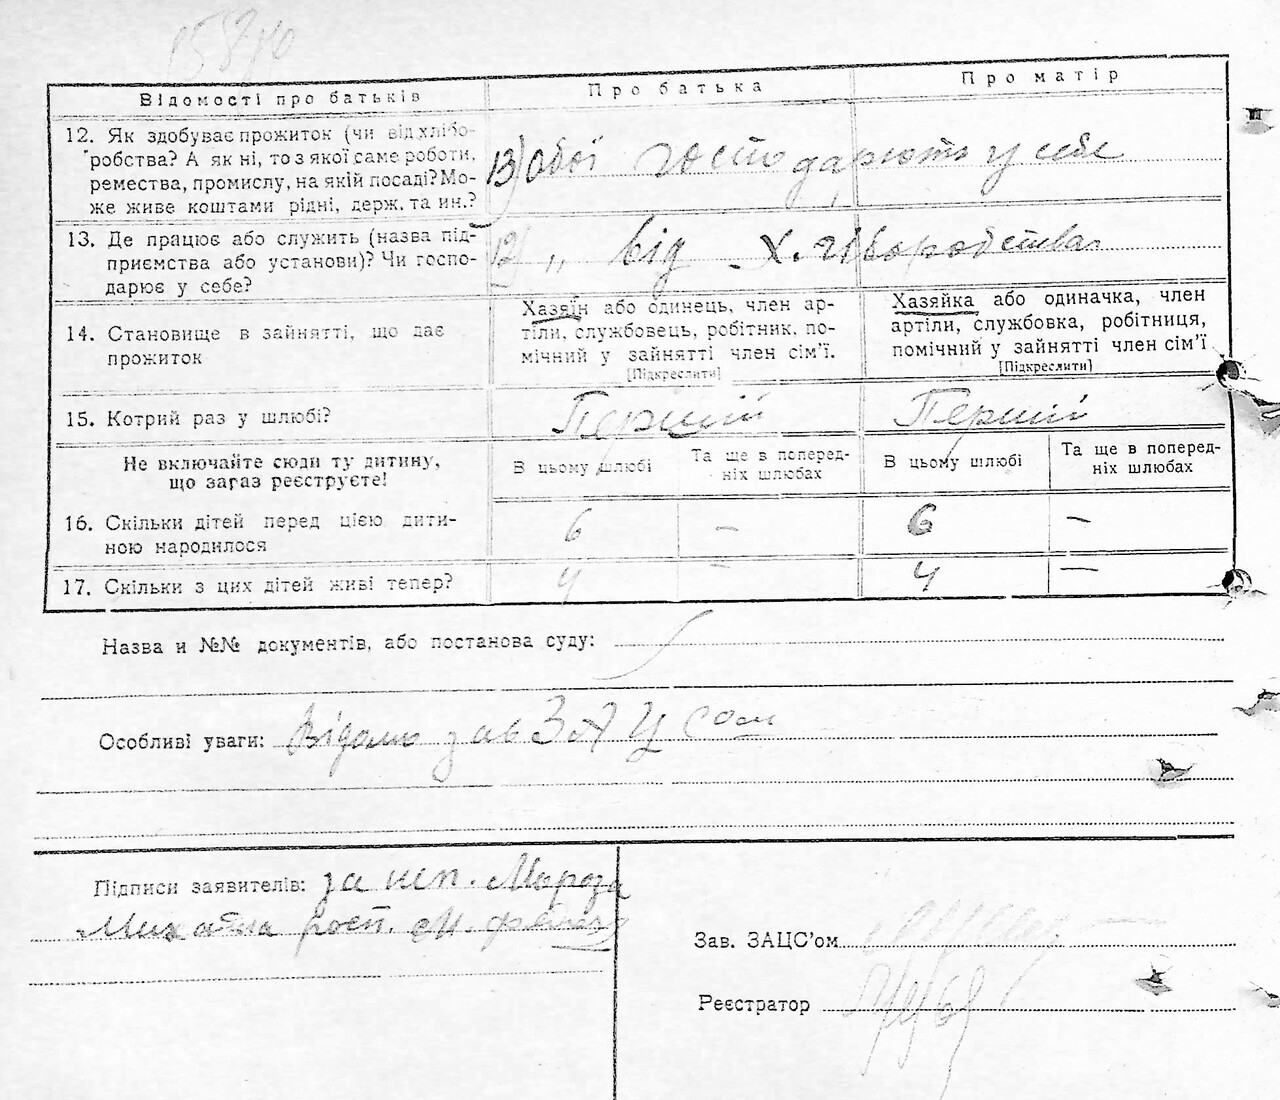 Відомості про батьків Про батька Про матір
12. Як здобуває прожиток (чи від хлібо-
робства? А як ні, то з якої саме роботи,
ремества, промислу, на якій посаді? Мо-
же живе коштами рідні, держ. та ин.?
13) обої господарюють у себе
13. Де працює або служить (назва під-
приємства або установи)? Чи госпо-
дарює у себе?
12) „ від хліборобства
14. Становище в зайнятті, що дає
прожиток
Хазяїн або одинець, член ар-
тіли, службовець, робітник, по-
мічний у зайнятті член сім'ї.
[Підкреслити]
Хазяйка або одиначка, член
артіли, службовка, робітниця,
помічний у зайнятті член сім'ї
[Підкреслити]
15. Котрий раз у шлюбі? Перший Перший
Не включайте сюди ту дитину,
що зараз реєструєте!
В цьому шлюбі
Та ще в поперед-
ніх шлюбах
В цьому шлюбі
Та ще в поперед-
ніх шлюбах
16. Скільки дітей перед цією дити-
ною народилося
6 — 6 —
17. Скільки з цих дітей живі тепер? 4 — 4 —
Назва и №№ документів, або постанова суду:
Особливі уваги: Відомо зав ЗАЦСом
Підписи заявителів: за неп. Мороза
Михайла росп. М.
Зав. ЗАЦС'ом
Реєстратор